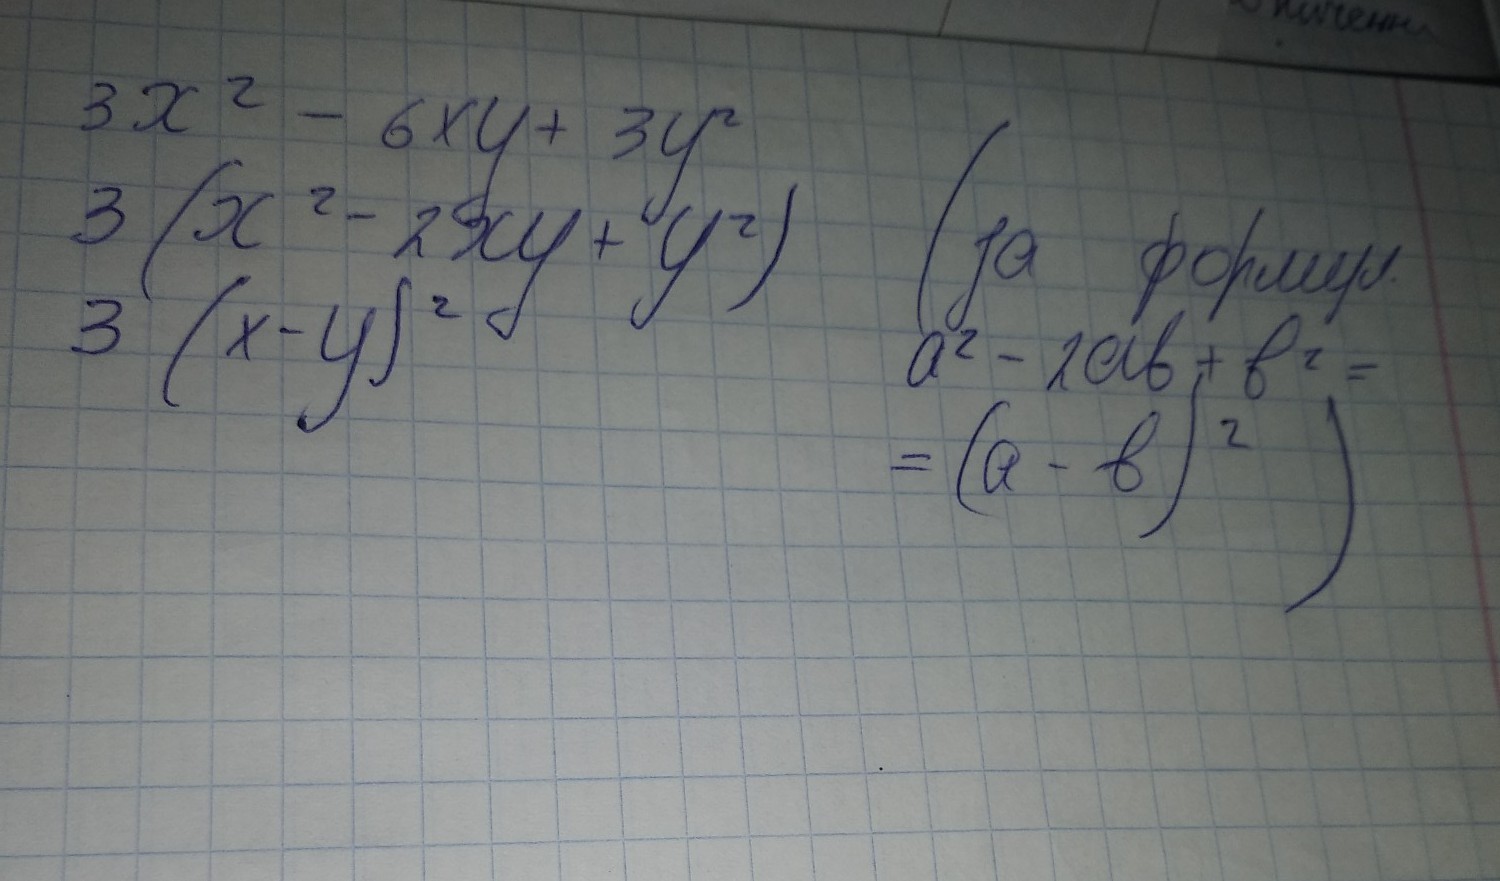 3x² - 6xy + 3y²
3(x² - 2xy + y²)
3(x-y)²
(за формул.
a² - 2ab + b² =
= (a - b)²)